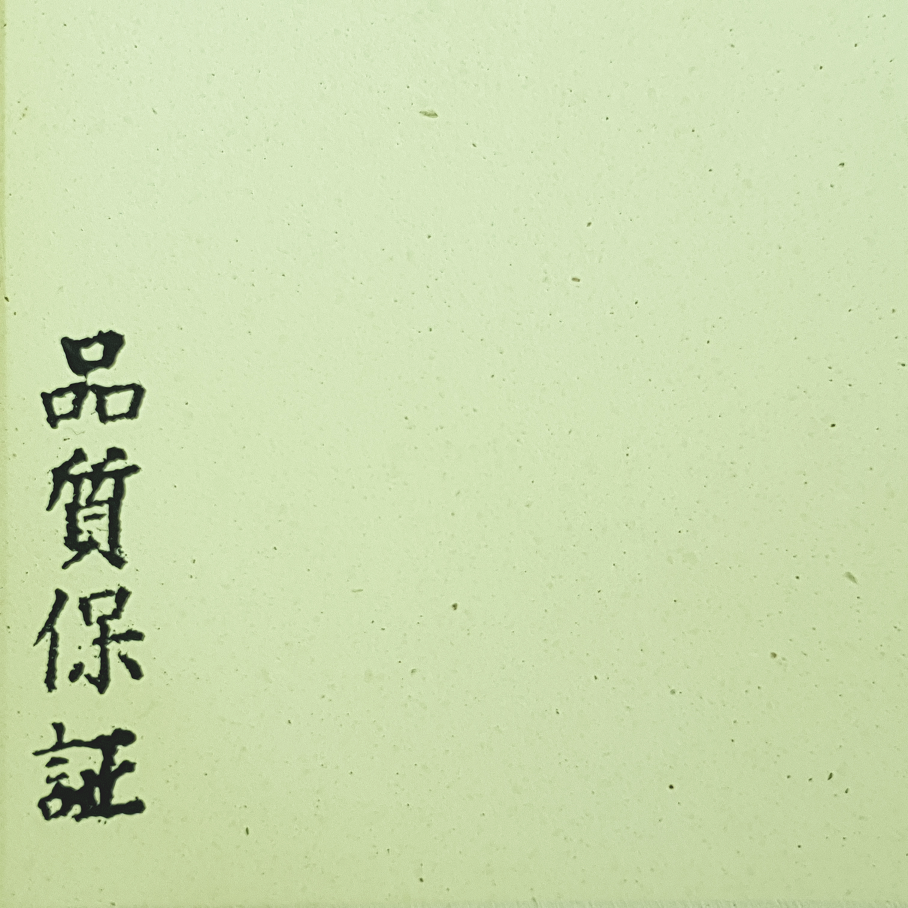 品質保証